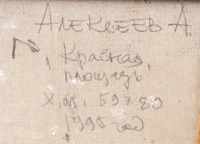 Алексеев А.
"Красная
площадь"
х.м. 59х80
1995 год